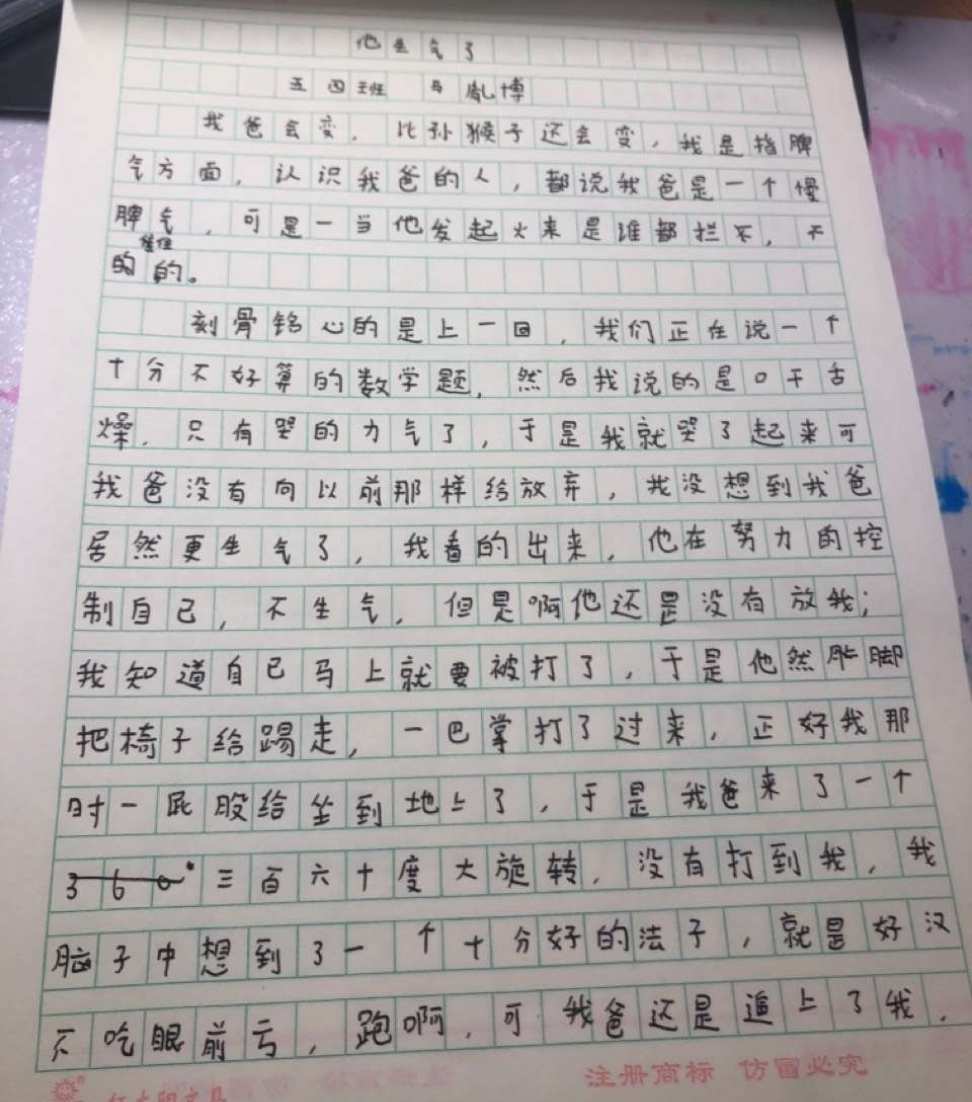 他生气了
五四班 马胤博
我爸会变，比孙猴子还会变，我是指脾
气方面，认识我爸的人，都说我爸是一个慢
脾气，可是一当他发起火来是谁都拦不，不
住
的的。
刻骨铭心的是上一回，我们正在说一个
十分不好算的数学题，然后我说的是口干舌
燥，只有哭的力气了，于是我就哭了起来可
我爸没有向以前那样给放弃，我没想到我爸
居然更生气了，我看的出来，他在努力的控
制自己，不生气，但是啊他还是没有放我；
我知道自己马上就要被打了，于是他然脚
把椅子给踢走，一巴掌打了过来，正好我那
时一屁股给坐到地上了，于是我爸来了一个
360°三百六十度大旋转，没有打到我，我
脑子中想到了一个十分好的法子，就是好汉
不吃眼前亏，跑啊，可我爸还是追上了我，
注册商标 仿冒必究